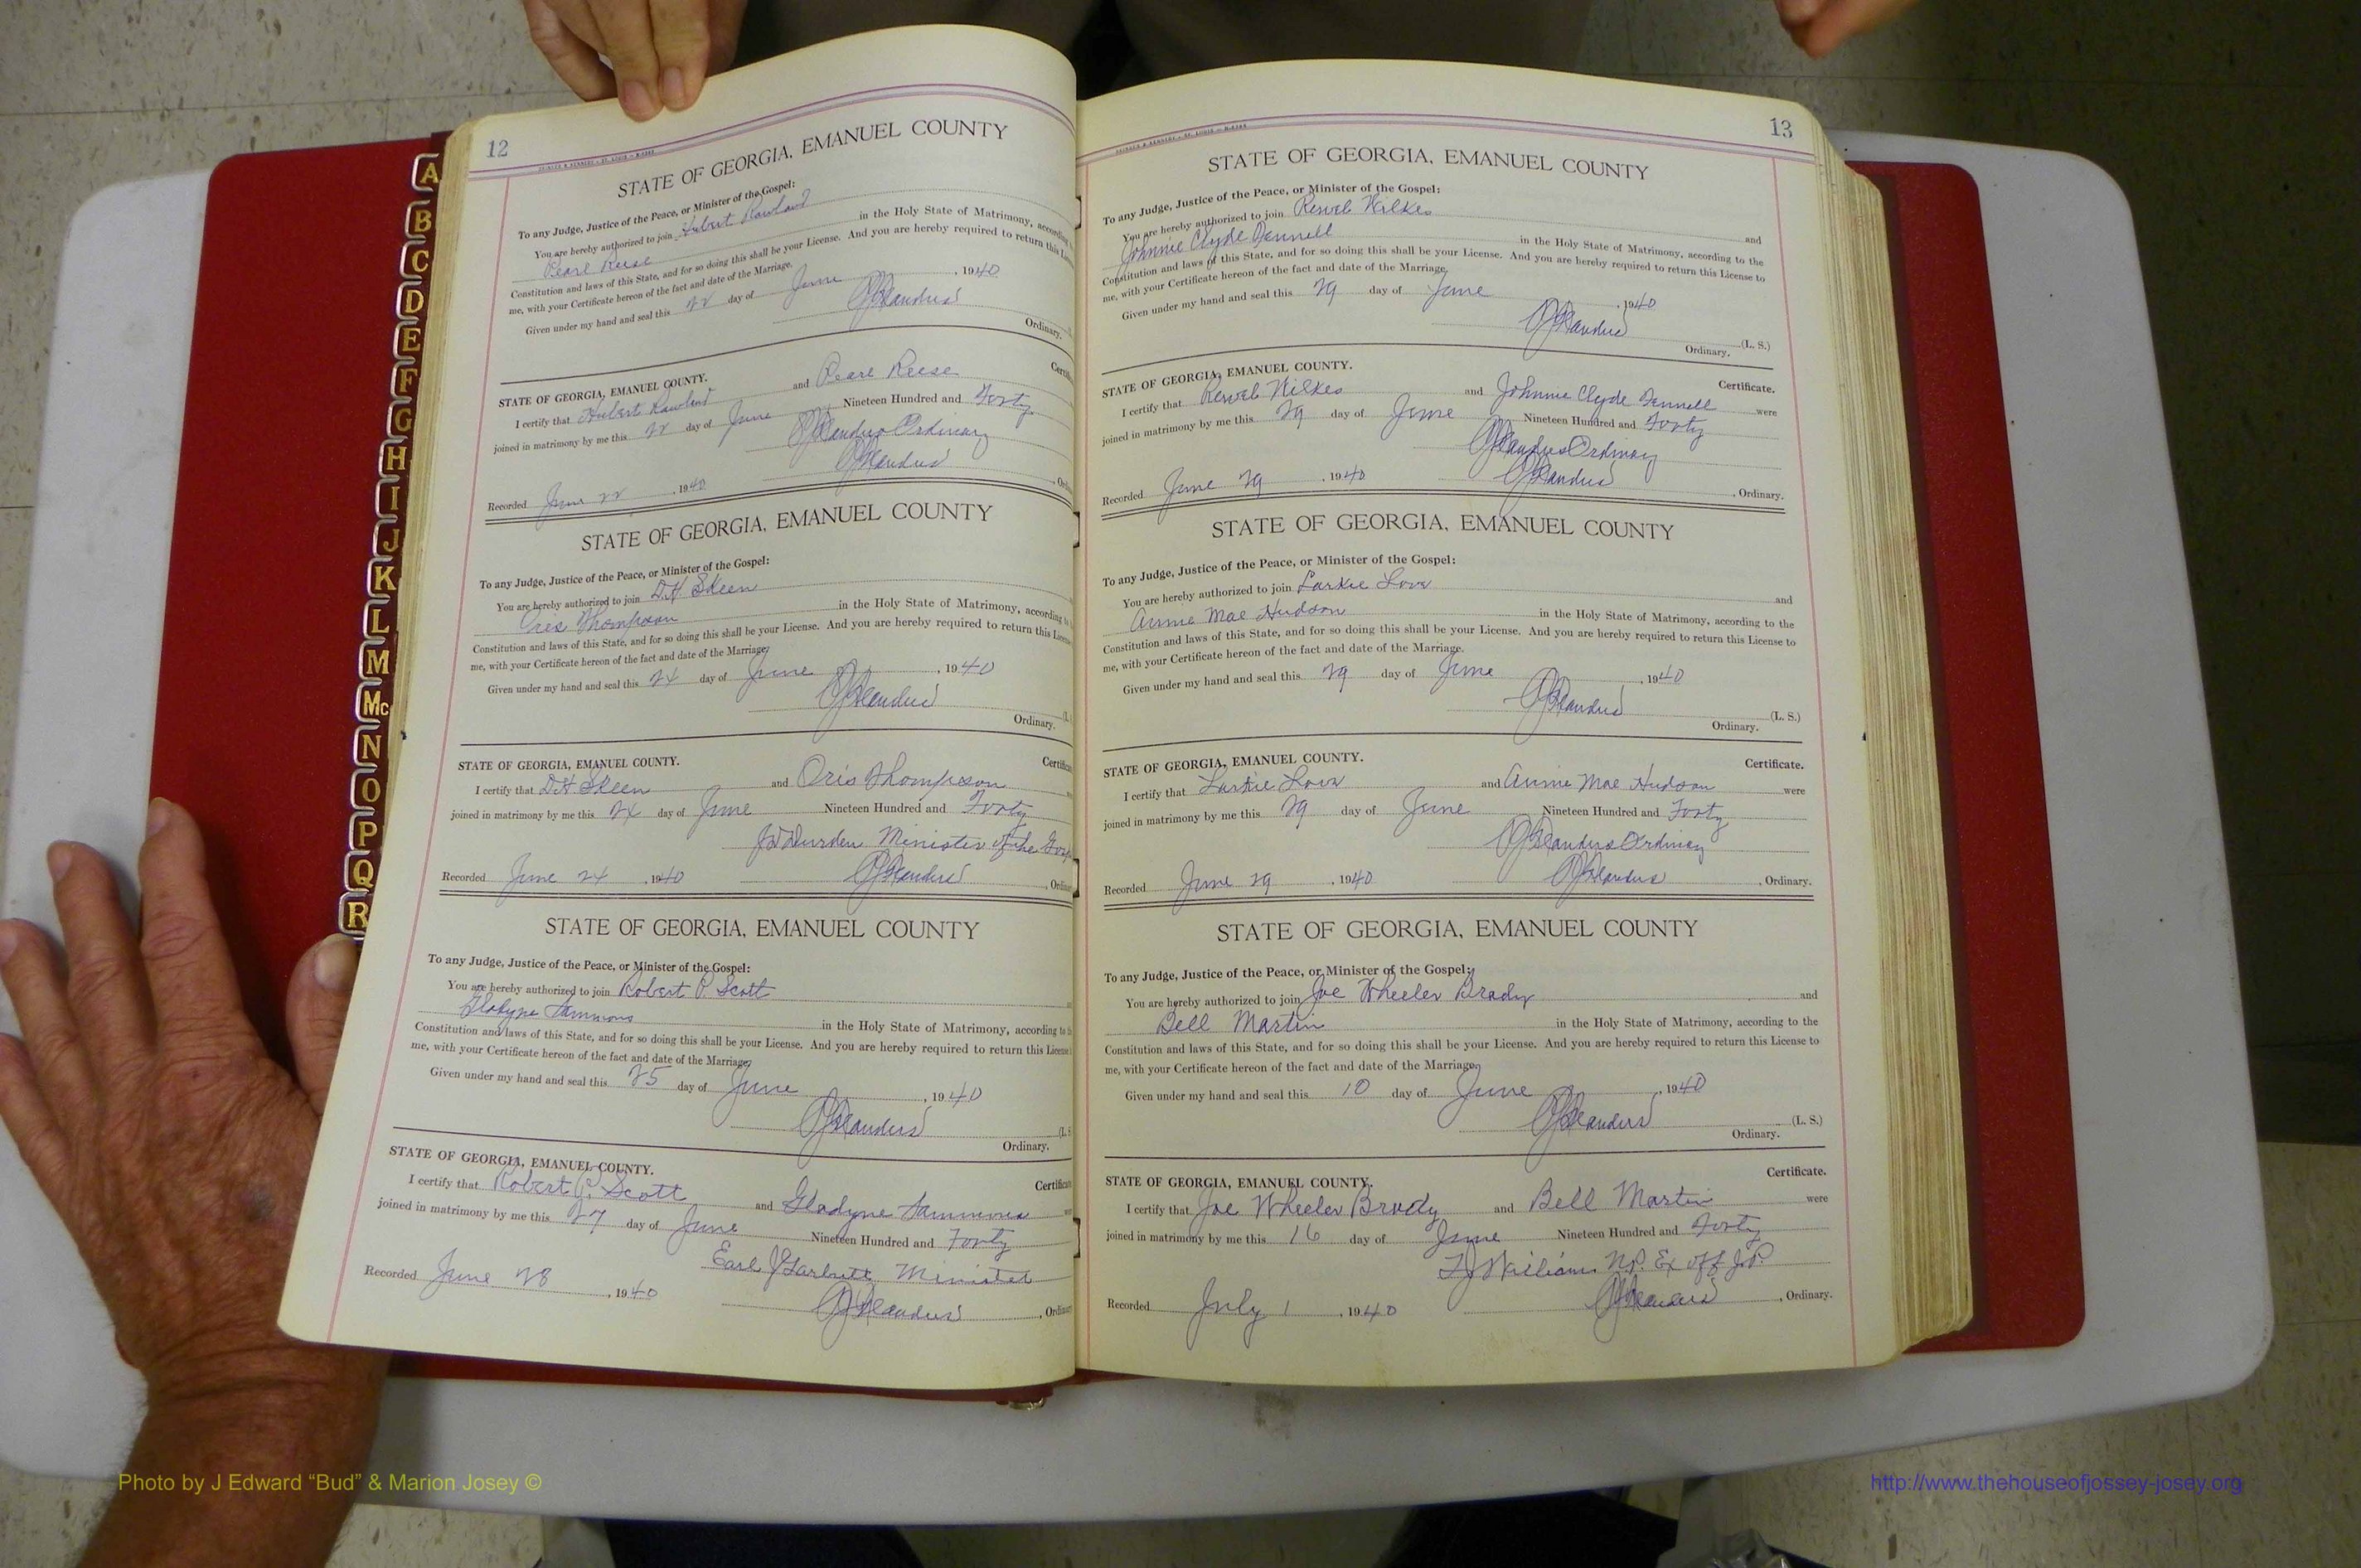 12
STATE OF GEORGIA, EMANUEL COUNTY
To any Judge, Justice of the Peace, or Minister of the Gospel:
You are hereby authorized to join Hubert Rowland
Pearl Reese in the Holy State of Matrimony, according
Constitution and laws of this State, and for so doing this shall be your License. And you are hereby required to return this
me, with your Certificate hereon of the fact and date of the Marriage.
Given under my hand and seal this 22 day of June, 1940
Ordinary.
STATE OF GEORGIA, EMANUEL COUNTY.
I certify that Hubert Rowland and Pearl Reese
joined in matrimony by me this 22 day of June Nineteen Hundred and Forty
Ordinary
Recorded June 22, 1940
STATE OF GEORGIA, EMANUEL COUNTY
To any Judge, Justice of the Peace, or Minister of the Gospel:
You are hereby authorized to join D.H. Skeen
Oris Thompson in the Holy State of Matrimony, according
Constitution and laws of this State, and for so doing this shall be your License. And you are hereby required to return this
me, with your Certificate hereon of the fact and date of the Marriage.
Given under my hand and seal this 24 day of June, 1940
Ordinary.
STATE OF GEORGIA, EMANUEL COUNTY.
I certify that D.H. Skeen and Oris Thompson
joined in matrimony by me this 24 day of June Nineteen Hundred and Forty
Minister of the
Recorded June 24, 1940
STATE OF GEORGIA, EMANUEL COUNTY
To any Judge, Justice of the Peace, or Minister of the Gospel:
You are hereby authorized to join Robert P. Scott
Gladyne Sammons in the Holy State of Matrimony, according
Constitution and laws of this State, and for so doing this shall be your License. And you are hereby required to return this License
me, with your Certificate hereon of the fact and date of the Marriage.
Given under my hand and seal this 25 day of June, 1940
Ordinary.
STATE OF GEORGIA, EMANUEL COUNTY.
I certify that Robert P. Scott and Gladyne Sammons
joined in matrimony by me this 27 day of June Nineteen Hundred and Forty
Earl Minister
Recorded June 28, 1940
13
STATE OF GEORGIA, EMANUEL COUNTY
To any Judge, Justice of the Peace, or Minister of the Gospel:
You are hereby authorized to join Wilkes and
Johnnie Clyde in the Holy State of Matrimony, according to the
Constitution and laws of this State, and for so doing this shall be your License. And you are hereby required to return this License to
me, with your Certificate hereon of the fact and date of the Marriage.
Given under my hand and seal this 29 day of June, 1940
(L. S.)
Ordinary.
STATE OF GEORGIA, EMANUEL COUNTY. Certificate.
I certify that Wilkes and Johnnie Clyde were
joined in matrimony by me this 29 day of June Nineteen Hundred and Forty
Ordinary
Recorded June 29, 1940, Ordinary.
STATE OF GEORGIA, EMANUEL COUNTY
To any Judge, Justice of the Peace, or Minister of the Gospel:
You are hereby authorized to join Larkie Love and
Annie Mae Hudson in the Holy State of Matrimony, according to the
Constitution and laws of this State, and for so doing this shall be your License. And you are hereby required to return this License to
me, with your Certificate hereon of the fact and date of the Marriage.
Given under my hand and seal this 29 day of June, 1940
(L. S.)
Ordinary.
STATE OF GEORGIA, EMANUEL COUNTY. Certificate.
I certify that Larkie Love and Annie Mae Hudson were
joined in matrimony by me this 29 day of June Nineteen Hundred and Forty
Ordinary
Recorded June 29, 1940, Ordinary.
STATE OF GEORGIA, EMANUEL COUNTY
To any Judge, Justice of the Peace, or Minister of the Gospel:
You are hereby authorized to join Joe Wheeler Brady and
Bell Martin in the Holy State of Matrimony, according to the
Constitution and laws of this State, and for so doing this shall be your License. And you are hereby required to return this License to
me, with your Certificate hereon of the fact and date of the Marriage.
Given under my hand and seal this 10 day of June, 1940
(L. S.)
Ordinary.
STATE OF GEORGIA, EMANUEL COUNTY. Certificate.
I certify that Joe Wheeler Brady and Bell Martin were
joined in matrimony by me this 16 day of June Nineteen Hundred and Forty
Williams N.P. Ex off J.P.
Recorded July 1, 1940, Ordinary.
A
B
C
D
E
F
G
H
I
J
K
L
M
Mc
N
O
P
Q
R
Photo by J Edward “Bud” & Marion Josey ©
http://www.thehouseofjossey-josey.org